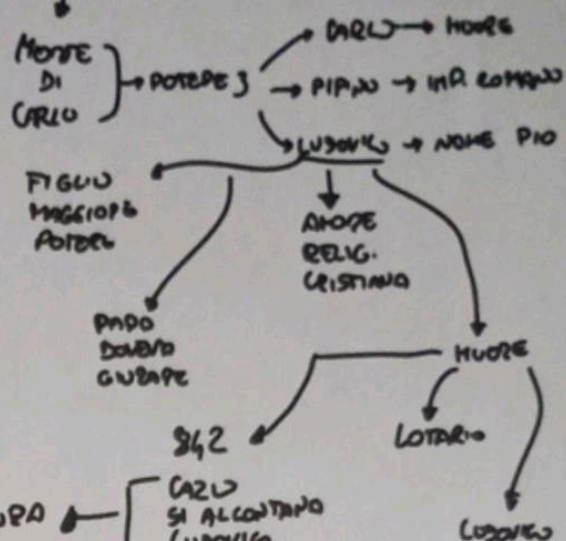 MORTE
DI
CARLO
POTERE 3
CARLO → MUORE
PIPINO → IMP. ROMANO
LUDOVICO → NOME PIO
FIGLIO
MAGGIORE
POTERE
AMORE
RELIG.
CRISTIANA
PAPA
DOVEVA
GIURARE
MUORE
842
LOTARIO
CARLO
SI ALLONTANA
LUDOVICO
LUDOVICO